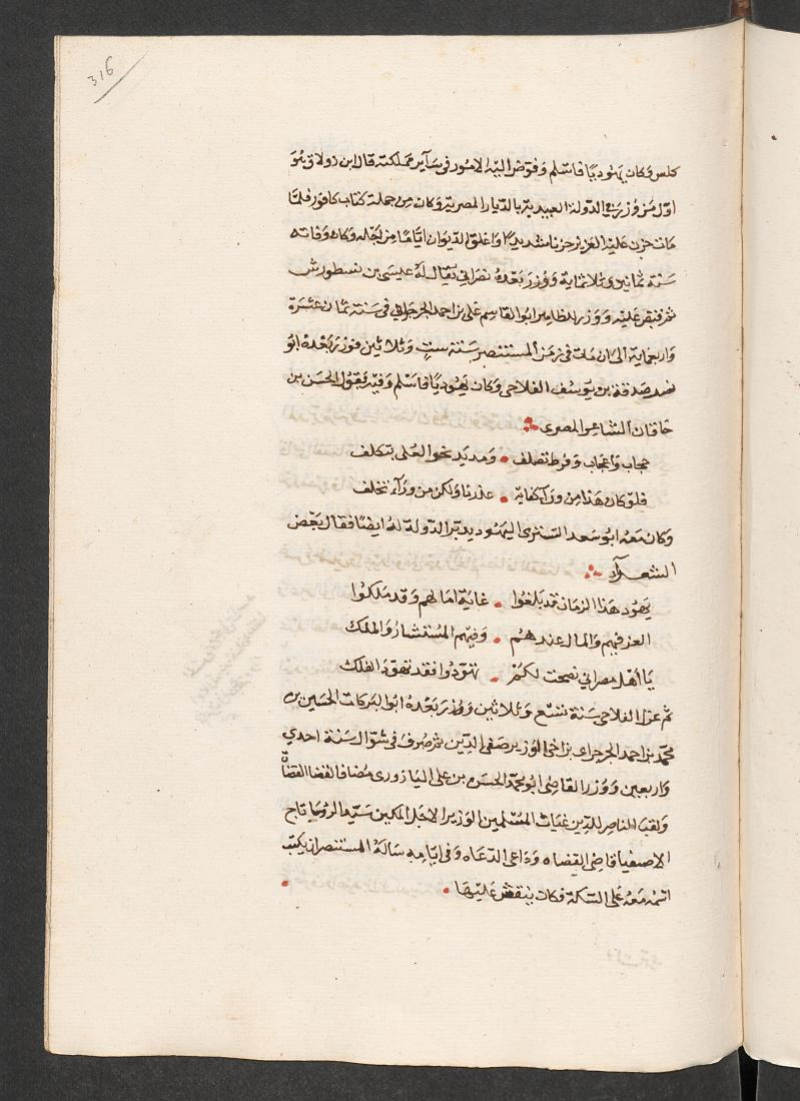 316
كلس وكان يهوديا فاسلم وفوض اليه الامور في ساير مملكته قال ابن زولاق هو
اول من وزر في الدولة العبيدية بالديار المصرية وكان من جملة كتاب كافور فلما
مات حزن عليه العزيز حزنا شديدا واغلق الديوان اياما من اجله وكان وفاته
سنة ثمانين وثلاثماية ووزر بعده نصراني يقال له عيسى بن نسطورش
ثم قبض عليه ووزر للظاهر ابو القاسم على بن احمد الجرجراي في سنة ثمان عشرة
واربعماية الى ان مات في زمن المستنصر سنة ست وثلاثين فوزر بعده ابو
نصر صدقة بن يوسف الفلاحى وكان يهوديا فاسلم وفيه يقول الحسن بن
خاقان الشاعر المصرى
حجاب واعجاب وفرط تصلف • ومد يد نحو العلى بتكلف
فلو كان هذا من وراء كفاية • عذرنا ولكن من وراء تخلف
وكان معه ابو سعد التسترى اليهودى يدبر الدولة له ايضا فقال بعض
الشعراء
يهود هذا الزمان قد بلغوا • غاية امالهم وقد ملكوا
العز فيهم والمال عندهم • وفيهم المستشار والملك
يا اهل مصر انى نصحت لكم • تهودوا فقد تهود الفلك
ثم عزل الفلاحى سنة تسع وثلاثين ووزر بعده ابو البركات الحسين بن
محمد بن احمد الجرجراى بن اخى الوزير صفى الدين ثم صرف في شوال سنة احدي
واربعين ووزر القاضى ابو محمد الحسن بن على اليازورى مضافا لقضا القضاة
ولقب الناصر للدين غياث المسلمين الوزير الاجل المكين سيد الروسا تاج
الاصفيا قاضى القضاه وداعى الدعاه وفى ايامه ساله المستنصر ان يكتب
اسمه معه على السكة فكان ينقش عليها •